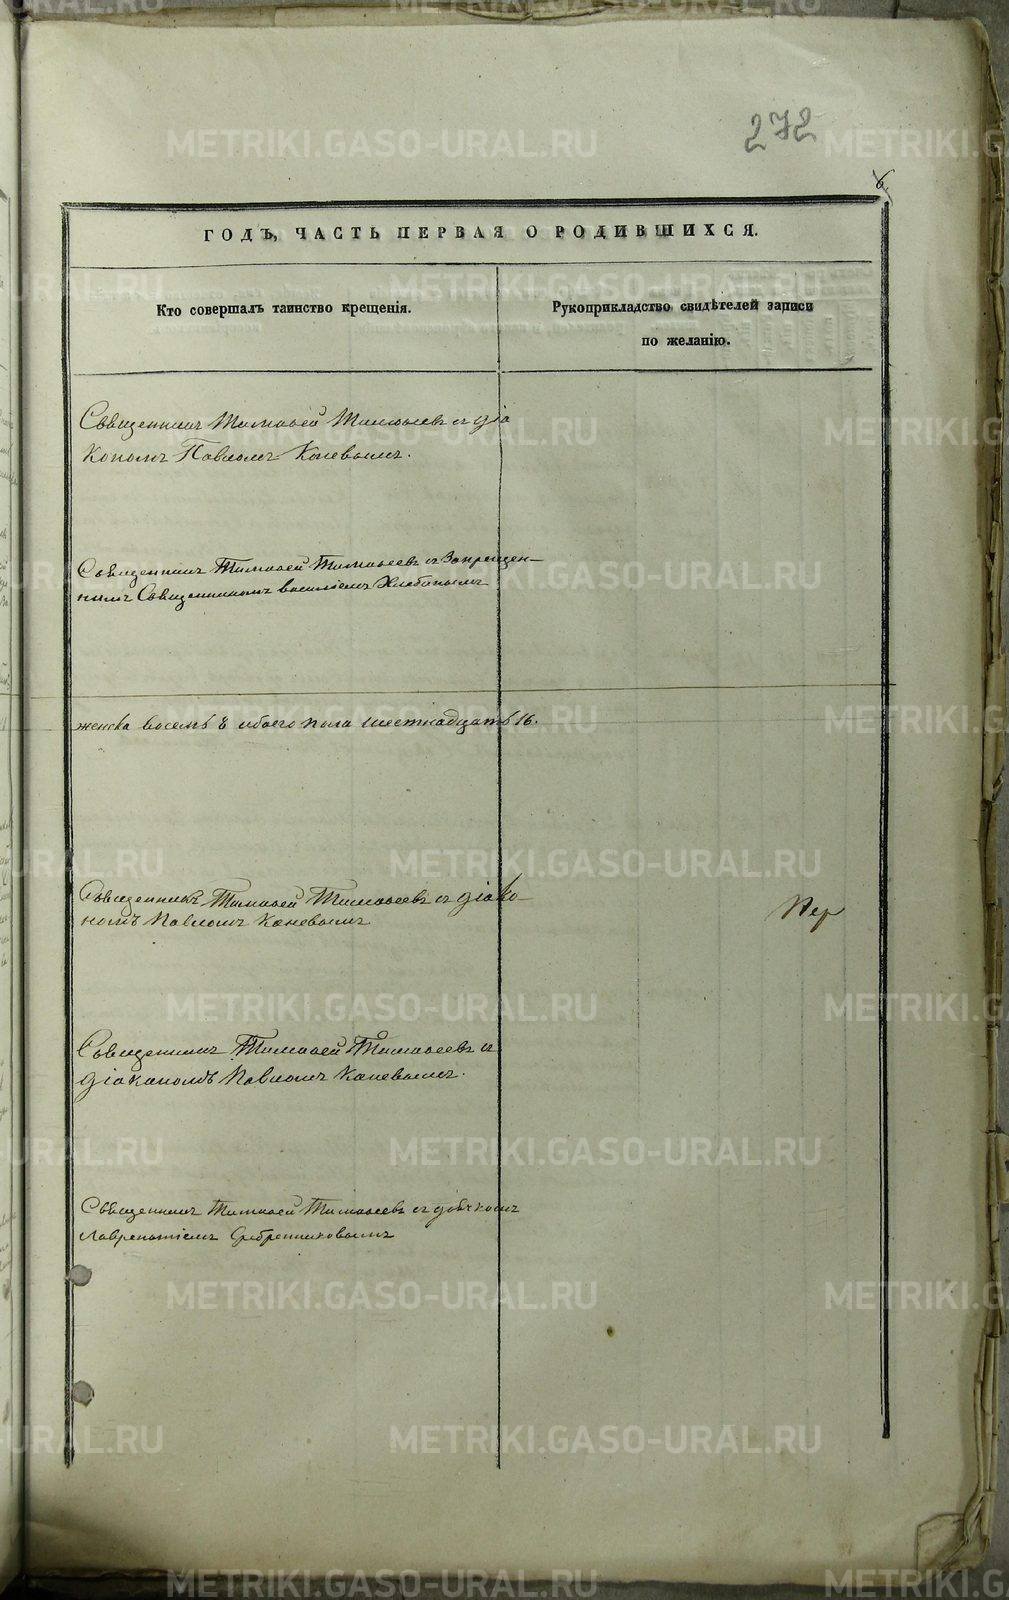 272
6.
ГОДЪ, ЧАСТЬ ПЕРВАЯ О РОДИВШИХСЯ.
Кто совершалъ таинство крещенія.
Рукоприкладство свидѣтелей записи
по желанію.
Священникъ Тимоѳей Тимоѳеевъ съ діа
кономъ Павломъ Каневымъ.
Священникъ Тимоѳей Тимоѳеевъ съ Запрещен-
нымъ Священникомъ Василіемъ Хлебинымъ
женска восемь 8 обоего пола шестнадцать 16.
Священникъ Тимоѳей Тимоѳеевъ съ діако-
номъ Павломъ Каневымъ
Священникъ Тимоѳей Тимоѳеевъ съ
діакономъ Павломъ Каневымъ.
Священникъ Тимоѳей Тимоѳеевъ съ дьячкомъ
Лаврентіемъ Серебренниковымъ
METRIKI.GASO-URAL.RU